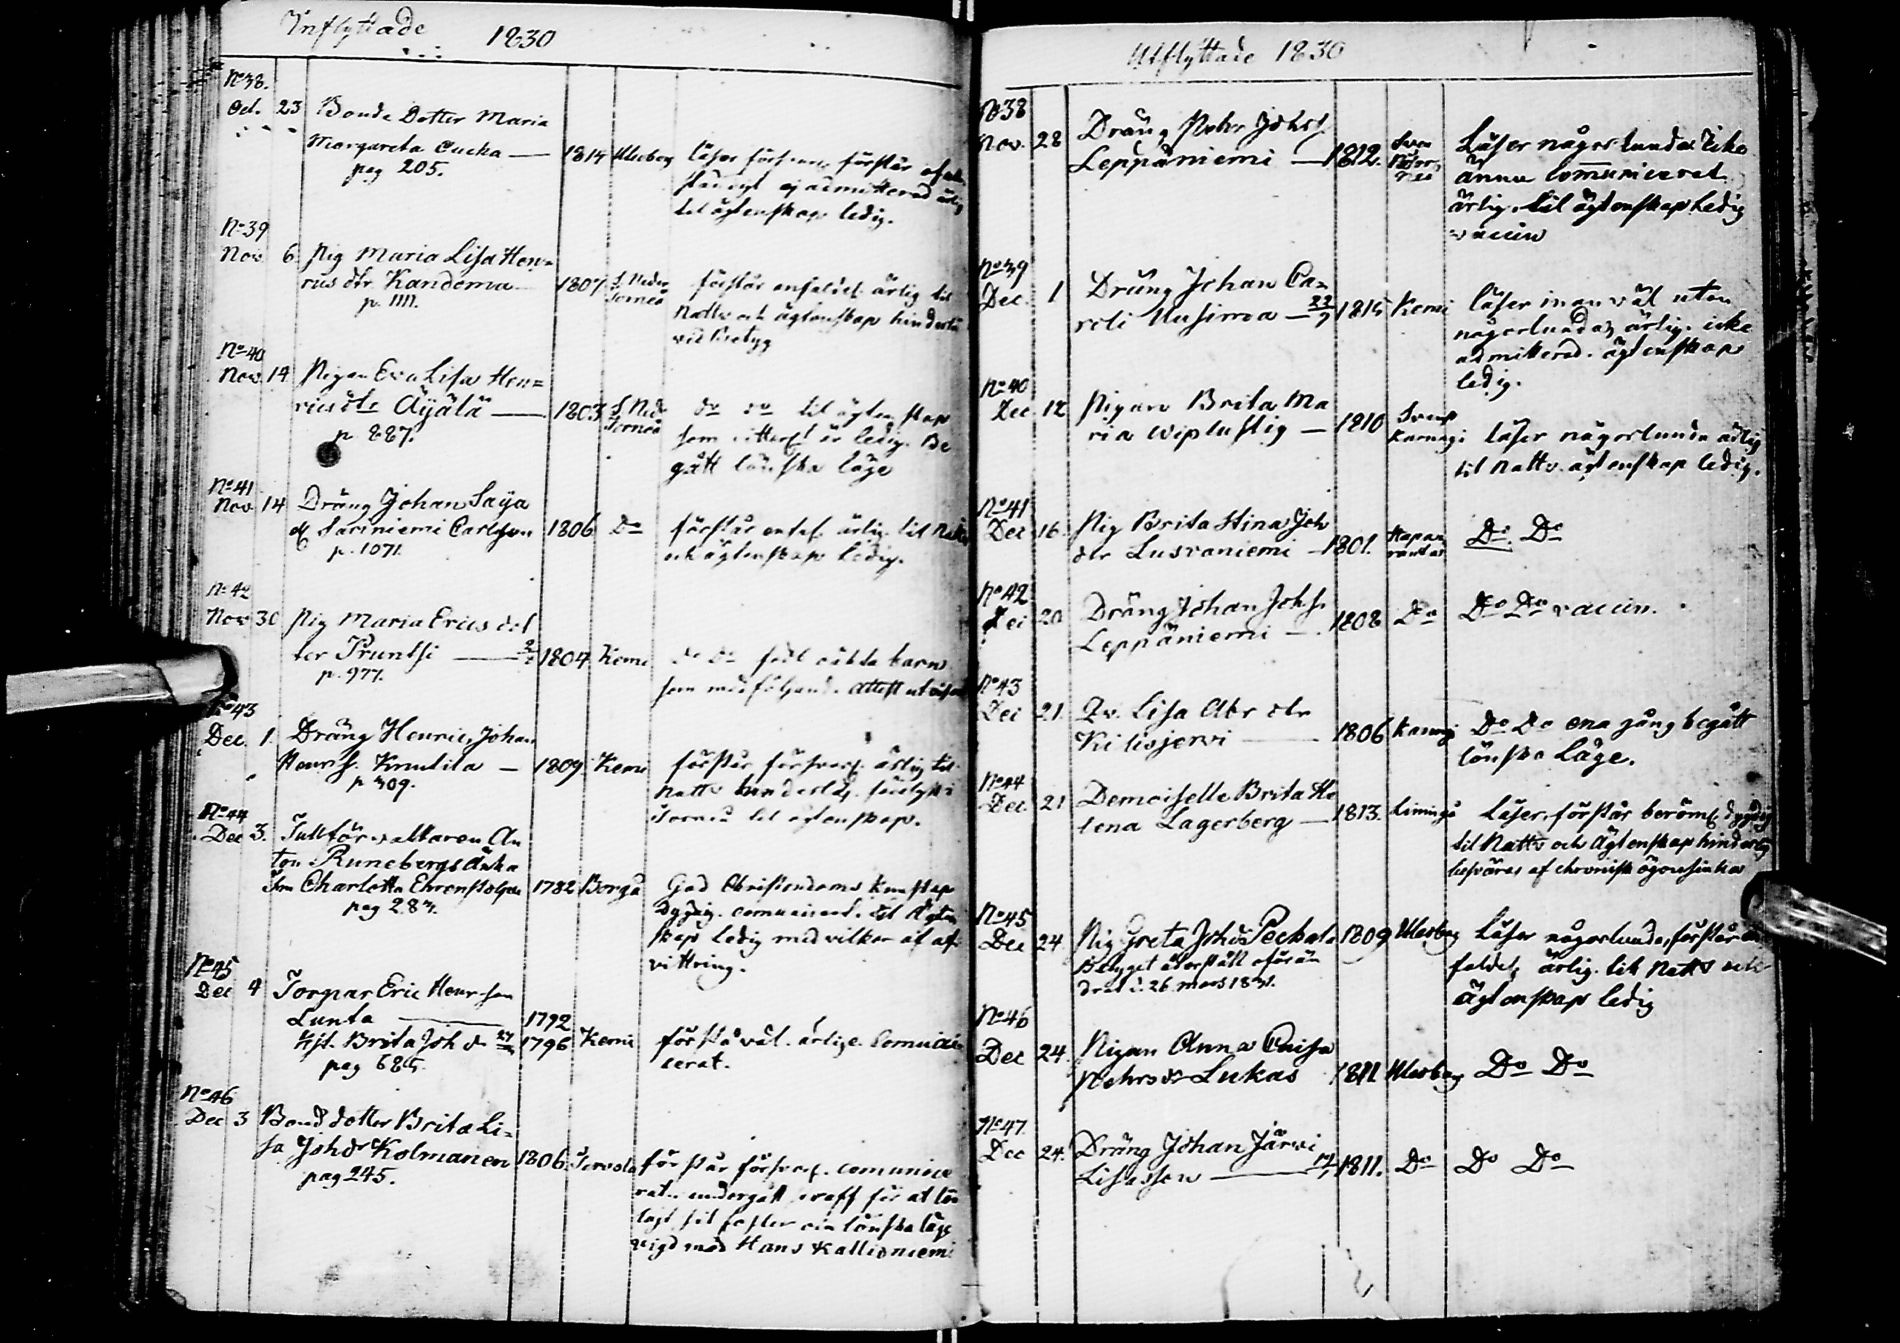 Inflyttade 1830
No 38.
Oct. 23 Bonde Dotter Maria
Margareta Cucka — 1814 Uleåborg läser försvar, förstår
pag 205.
stadigt ej admitterad ärlig
til ägtenskap ledig.
No 39
Nov 6. Pig Maria Lisa Hen=
rics dtr. Kandoma — 1807 Neder förstår enfaldel. ärlig til
p. 1111. Torneå Nattv. och ägtenskap hinderlös
No 40
Nov. 14 Pigan Eva Lisa Hen=
rics dtr Äijälä — 1803 Ned. do do til ägtenskap
p 887. Torneå som vitterl. är ledig. Be
gått lönska läge
No 41
Nov 14 Dräng Johan Saija
Sariniemi Carlsson 1806 Do förstår enfal. ärlig til Nattv
p. 1071. och ägtenskap ledig.
No 42
Nov 30 Pig Maria Erics dot
ter Pruntsi — 1804 Kemi do do födt oäkta barn
p. 977. som medföljande attest utvisar
No 43
Dec. 1. Dräng Henric Johan
Henrss. Knutila — 1809. Kemi förstår försvarl. ärlig til
p 309. Nattv. hinderlös.
Torneå til ägtenskap.
No 44
Dec 3. Tullförvaltaren An
ton Runebergs Änka
Charlotta Ehrenstolpe 1782 Borgå God Christendoms kunskap
pag 283. Dygdig. comunicerat. til Ägten
skap ledig med vilkor af af-
vittring.
No 45
Dec 4 Torpar Eric Henr. son
Lunta — 1792
Hst. Brita Joh dr 1796 Kemi förstå väl. ärliga. Comuni
pag 685. cerat.
No 46
Dec 3 Bond dotter Brita Li=
sa Joh dr Kolmanen 1806. Tervola förstår försvarl. comunice
pag 245. rat. undergått straff för at
lönska läge
vigd med Hans Kallioniemi
Utflyttade 1830
No 38
Nov. 28 Dräng Pehr Johss.
Leppäniemi — 1812. Läser någorlunda Icke
ännu comunicerat
ärlig. til ägtenskap ledig
vaccin
No 39
Dec. 1 Dräng Johan Ca=
roli Uusimaa — 1815 Kemi läser innan väl utan
någorlunda, ärlig. icke
admitterad. ägtenskaps
ledig.
No 40
Dec 12 Pigan Brita Ma
ria Wiplustig — 1810 Svensk
Karungi läser någorlunda ärlig
til Nattv. ägtenskap ledig.
No 41
Dec 16. Pig Brita Stina Joh
dtr Lusvaniemi — 1801. Hapa
randa Do Do
No 42
Dec 20 Dräng Johan Johss.
Leppäniemi — 1808 Do Do Do vaccin.
No 43
Dec 21. Qv. Lisa Abr dtr
Kilisjervi — 1806 Karungi Do Do ena gång begått
lönska Läge.
No 44
Dec 21 Demoiselle Brita He
lena Lagerberg — 1813. Limingo Läser, förstår berömel. dygdig
til Nattv. och Ägtenskap hinderlös
besväras af chronisk ögonsjuka
No 45
Dec 24. Pig Greta Johdr Peckala 1809 Uleåborg Läser någorlunda, förstår en
Betyget återstält oförän faldel. ärlig til Nattv och
drat d. 26 mars 1831. Ägtenskap ledig
No 46
Dec 24. Pigan Anna Caisa
Pehrsdr Lukas 1811 Uleåborg Do Do
No 47.
Dec 24. Dräng Johan Järvi
Lisasson — 1811. Do Do Do